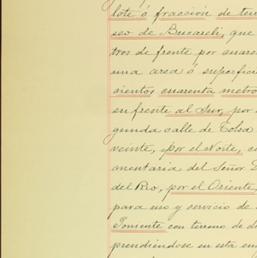 lote ó fracción de terre
seo de Bucareli, que
tros de frente por cuaren
una area ó superfici
cientos cuarenta metro
en frente al Sur, por
gunda calle de Tolsa
veinte, por el Norte, co
amentaria del Señor D
del Rio, por el Oriente,
para uso y servicio de
Poniente con terreno de d
prendiéndose en esta en